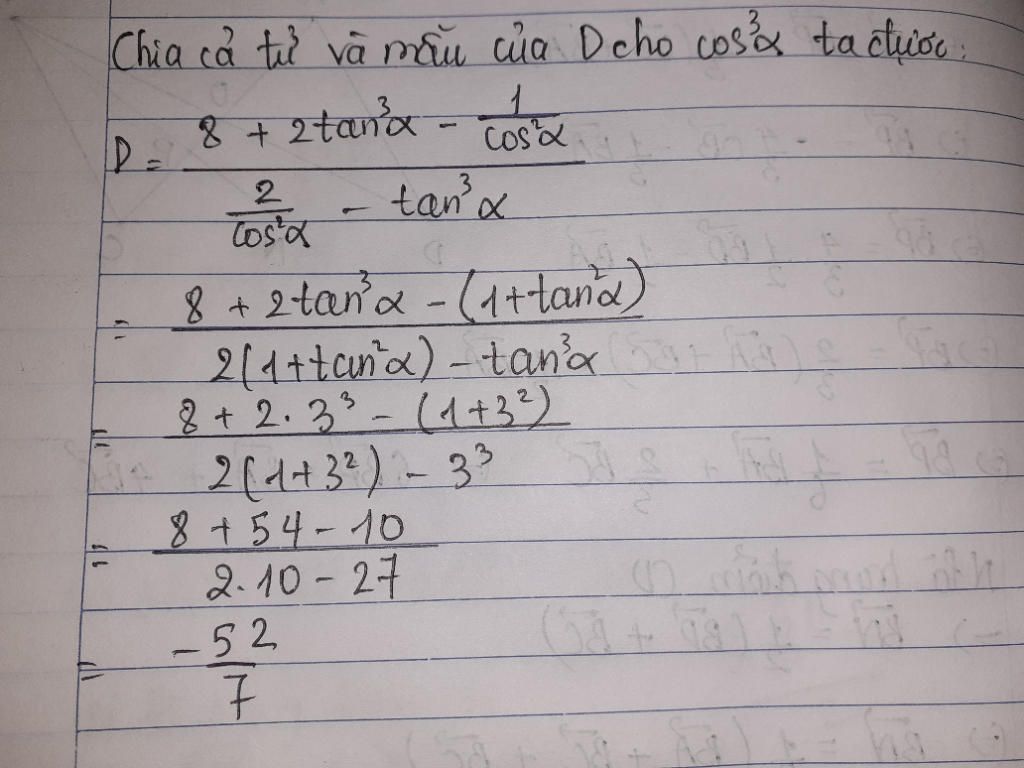 Chia cả tử và mẫu của D cho cos³α ta được:
D = (8 + 2tan³α - 1/cos²α) / (2/cos²α - tan³α)
= (8 + 2tan³α - (1+tan²α)) / (2(1+tan²α) - tan³α)
= (8 + 2.3³ - (1+3²)) / (2(1+3²) - 3³)
= (8 + 54 - 10) / (2.10 - 27)
= -52/7